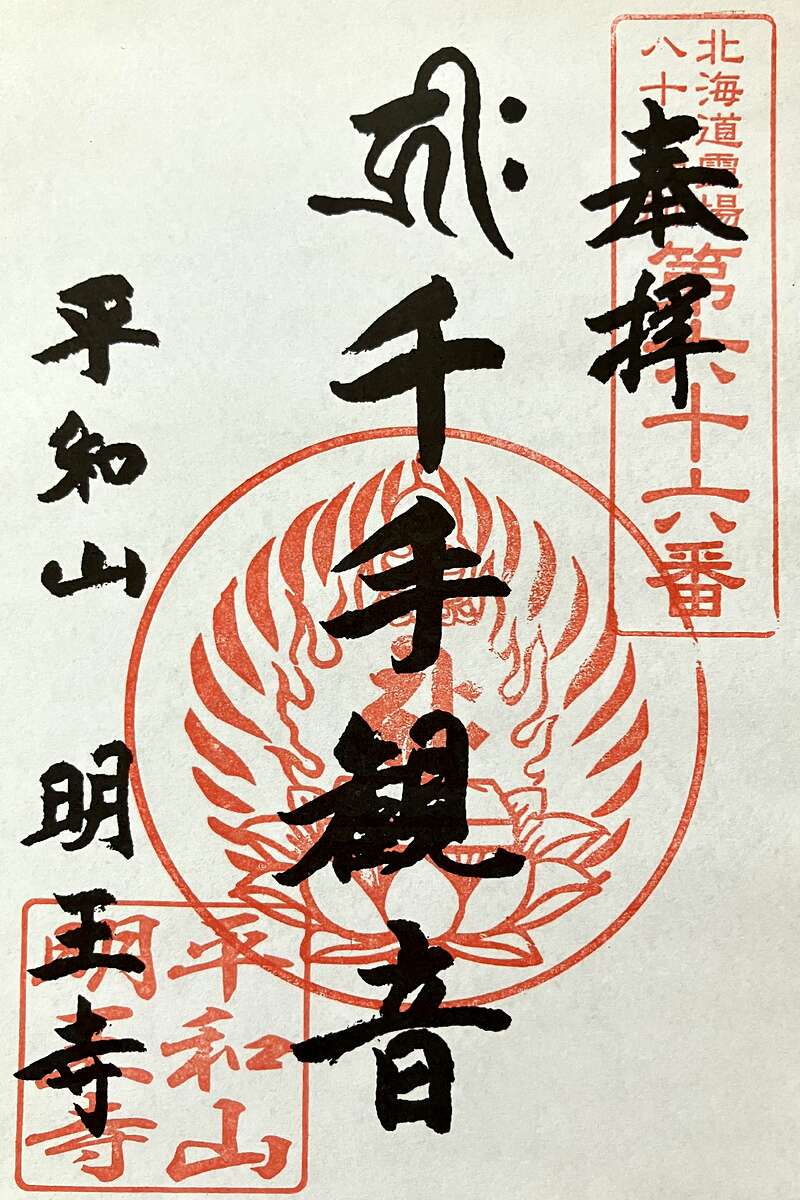 奉拝
北海道靈場
八十
第六十六番
𑖮𑖿𑖨𑖱𑖾
千手観音
平和山 明王寺
平和山
明王寺